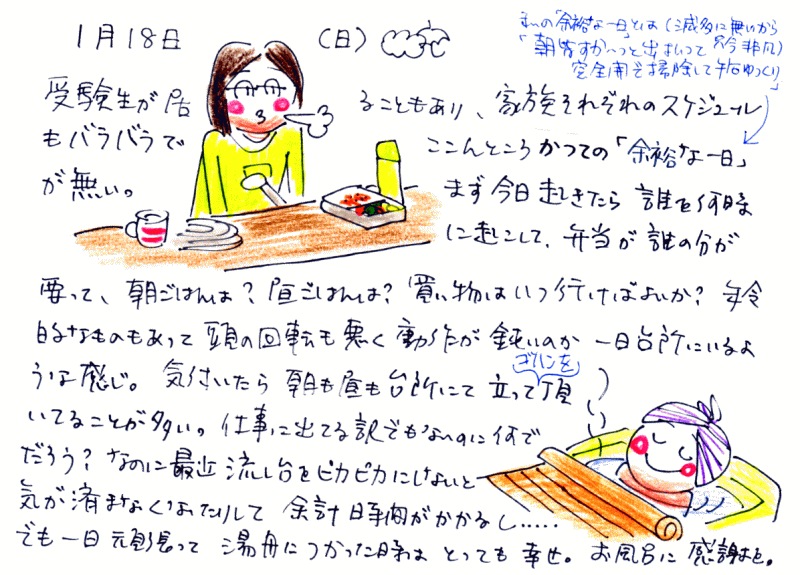 1月18日 (日)
私の「余裕な一日」とは(滅多に無いから
只今非凡)
「朝皆すか〜っと出はらって
完全開で掃除して午后ゆっくり」
受験生が居ることもあり、家族それぞれのスケジュール
もバラバラで ここんところかつての「余裕な一日」
が無い。 まず今日起きたら誰を何時
に起こして、弁当が誰の分が
要って、朝ごはんは?昼ごはんは?買い物はいつ行けばよいか?年令
的なものもあって頭の回転も悪く動作が鈍いのか一日台所にいるよ
うな感じ。気付いたら朝も昼も台所にて立って頂
ごはんを
いてることが多い。仕事に出てる訳でもないのに何で
だろう?なのに最近流し台をピカピカにしないと
気が済まなくなったりして余計時間がかかるし.....
でも一日頑張って湯舟につかった時はとっても幸せ。お風呂に感謝を。